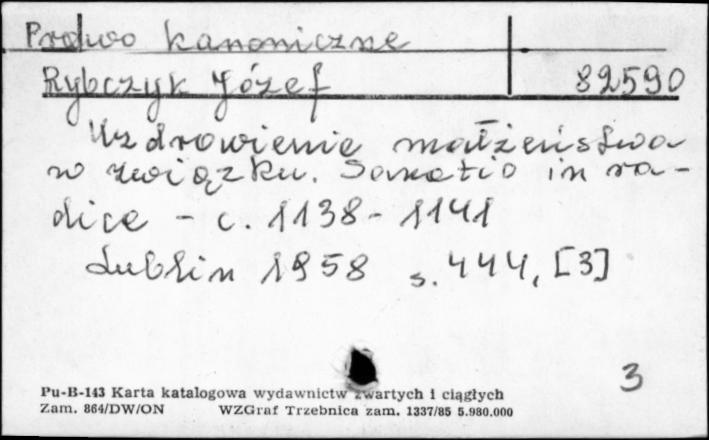 Prawo kanoniczne
Rybczyk Józef 82590
Uzdrowienie małżeństwa
w związku. Sanatio in ra-
dice - c. 1138-1141
Lublin 1958 s. 444, [3]
3
Pu-B-143 Karta katalogowa wydawnictw zwartych i ciągłych
Zam. 864/DW/ON WZGraf Trzebnica zam. 1337/85 5.980.000